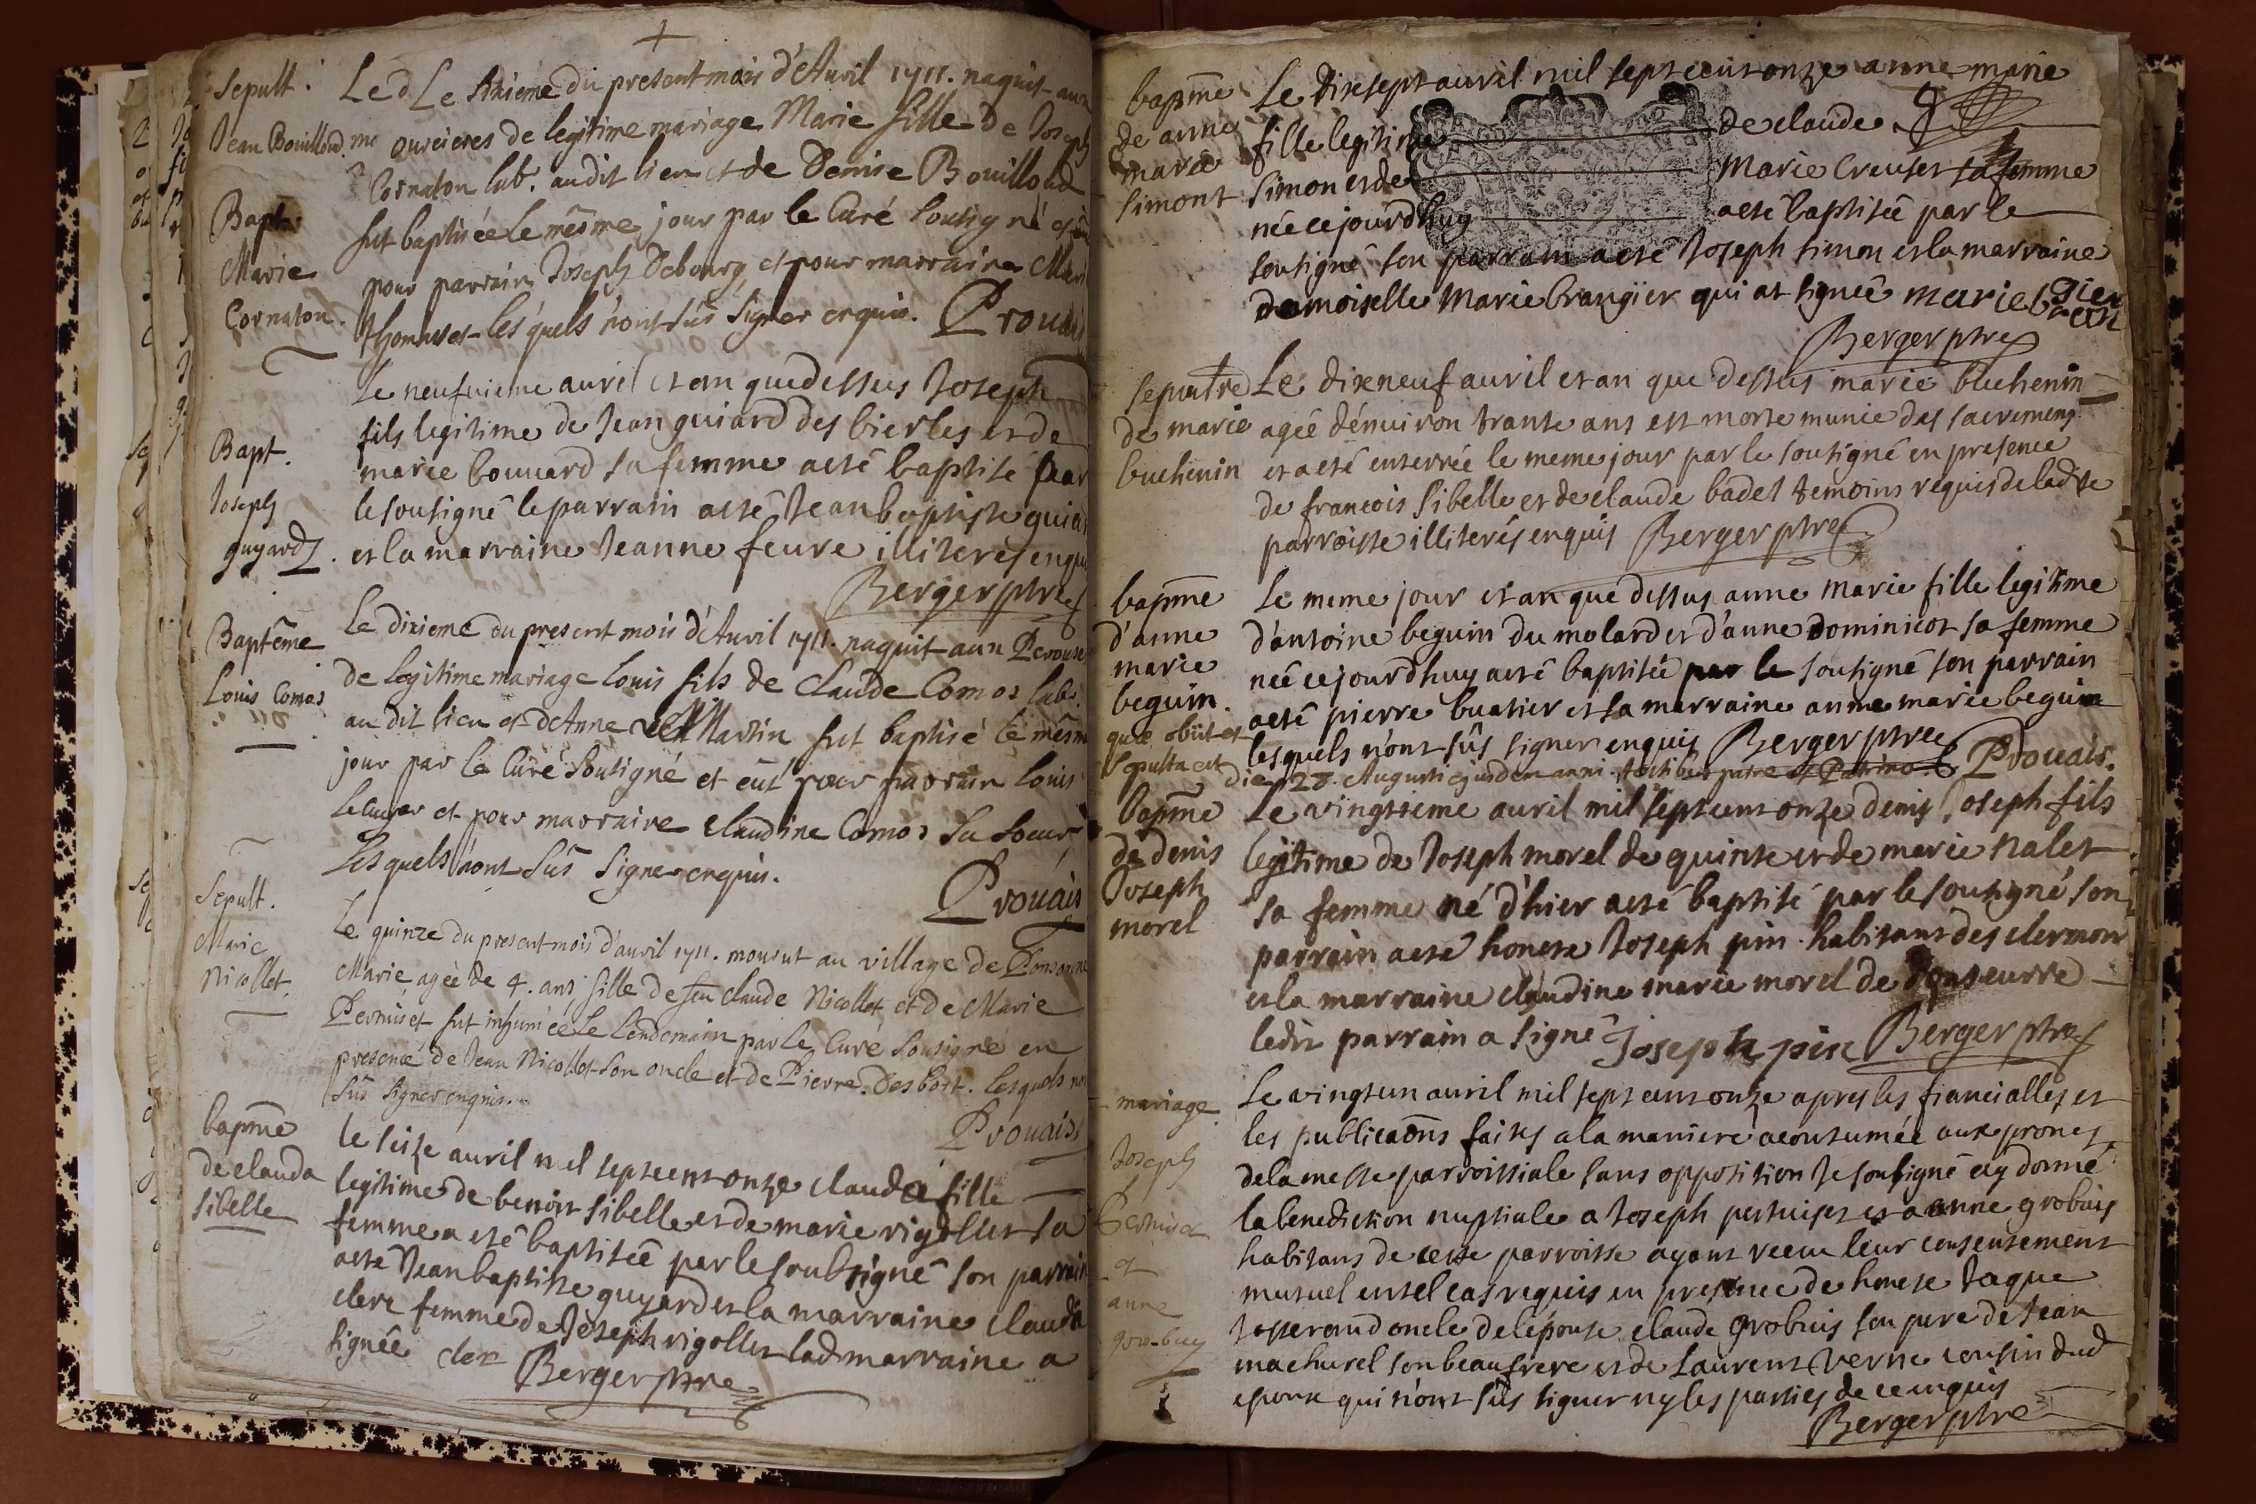 Sepult.
Jean Bouilloud.
Le d Le sixieme du present mois d'Avril 1711. naquit aux
ouvcieres de legitime mariage Marie fille de Joseph
Cornaton lab. audit lieu et de Denise Bouilloud
Bapt.
Marie
Cornaton.
fut baptisée le même jour par le Curé Soussigné et eut
pour parrain Joseph Debourg, et pour marraine Marie
Thomasset lesquels n'ont sus signer enquis. Provais
Bapt.
Joseph
guyard.
Le neufuieme avril et an que dessus Joseph
fils legitime de Jean guiard des bierles et de
marie bouuard sa femme a esté baptisé par
le sousigné le parrain a esté Jean baptiste guiar
et la marraine Jeanne feure illiterés enquis
Berger ptre
Baptême
Louis Comoz
Le dixieme du present mois d'Avril 1711. naquit aux Perouses
de legitime mariage Louis fils de Claude Comoz lab.
au dit lieu et d'Anne Martin fut baptisé le même
jour par le Curé Soussigné et eut pour parrain Louis
Lecuyer et pour marraine Claudine Comoz sa soeur
Lesquels n'ont sus signer enquis.
Provais
Sepult.
Marie
Nicollet.
Le quinze du present mois d'avril 1711. mourut au village de
Marie agée de 4. ans fille de feu Claude Nicollet et de Marie
Pernuiset fut inhumée le lendemain par le Curé Sousigné en
presence de Jean Nicollet son oncle et de Pierre Desbois. lesquels n'ont
sus signer enquis.
Provais
bapme
de clauda
sibelle
le seize auril mil sept cent onze clauda fille
legitime de benoit sibelle et de marie rigollet sa
femme a esté baptisée par le soubsigné son parrain
a esté Jean baptiste guyard et la marraine clauda
clere femme de Joseph rigollet lad marraine a
signée cler Berger ptre
bapme
de anne
marie
simont
Le dixsept auril mil sept cent onze anne marie
fille legitime de claude
simon et de Marie Creuset sa femme
née ce jourdhuy a esté baptisée par le
sousigné son parrain a esté Joseph simon et la marraine
demoiselle Marie brangier qui at signée marie brangier
Berger ptre
sepultre
de marie
buchenin
Le dixneuf auril et an que dessus marie buchenin
ageé dénuiron trante ans est morte munie des sacremens
et a esté enterrée le meme jour par le sousigné en presence
de francois sibelle et de claude badet temoins requis de ladite
parroisse illiterés enquis Berger ptre
bapme
d'anne
marie
beguin.
Le meme jour et an que dessus anne marie fille legitime
d'antoine beguin du molard et d'anne Dominicot sa femme
née ce jourdhuy a esté baptisée par le sousigné son parrain
a esté pierre buatier et sa marraine anne marie beguin
lesquels n'ont sus signer enquis Berger ptre
quæ obiit et
sepulta est die 28. Augusti ejusdem anni. testibus patre et Patrino. Provais.
bapme
de denis
Joseph
morel
Le vingtieme auril mil sept cent onze denis Joseph fils
legitime de Joseph morel de quinte et de marie nalet
sa femme né d'hier a esté baptisé par le sousigné son
parrain a esté honeste Joseph pin habitant des clermont
et la marraine claudine marie morel de
ledit parrain a signé Joseph pin Berger ptre
mariage
Joseph
Pernuiset
et
anne
gro-buy
Le vingt un auril mil sept cent onze apres les fiancialles et
les publicaōns faites a la maniere acoutumée aux prones
de la messe parroissiale sans opposition Je sousigné ay donné
la benediction nuptiale a Joseph pertuiset et a anne grobuis
habitans de cette parroisse ayant receu leur consentement
mutuel en tel cas requis en presence de honeste Jaque
Josserand oncle de lépouse claude grobuis son pere de Jean
machurel son beaufrere et de Laurent verne cousin dud
epoux qui n'ont sus signer ny les parties de ce enquis
Berger ptre